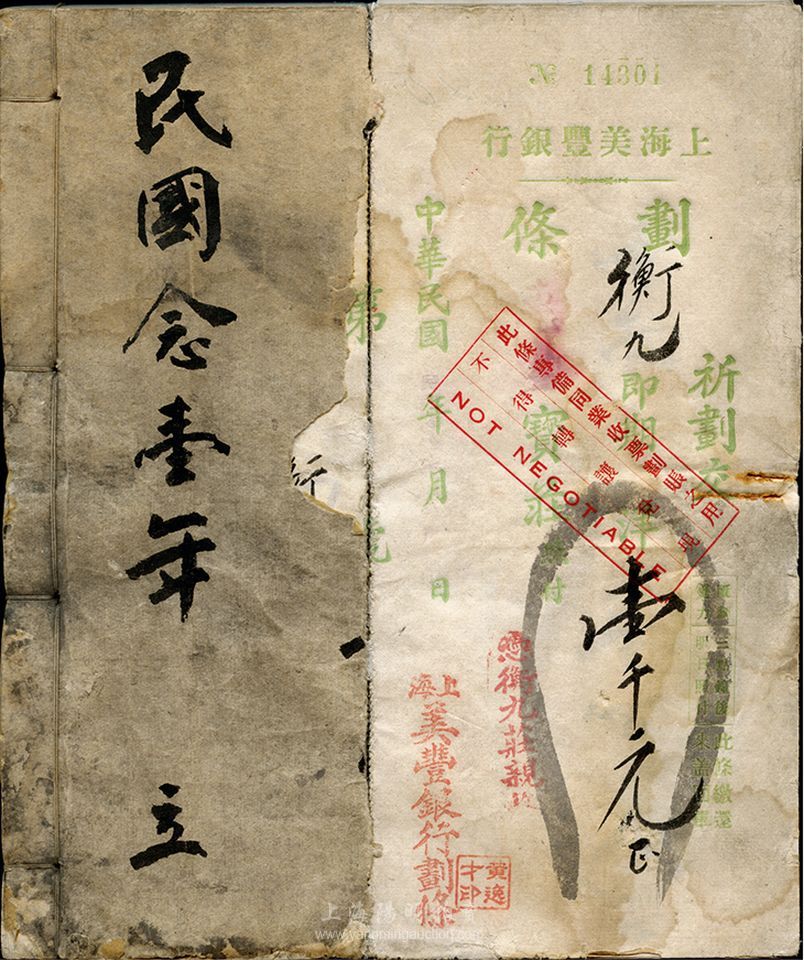 民國念壹年 立
№ 14301
上海美豐銀行
劃條
衡九
祈劃交
即期
洋
壹千元正
寶莊
中華民國
年 月 日
第
號
此條專備同業收票劃賬之用
不得轉讓
NOT NEGOTIABLE
衡九莊親
上海美豐銀行劃條
黃逸才印
此條繳還
行
上海陽明拍賣
www.yangmingauction.com